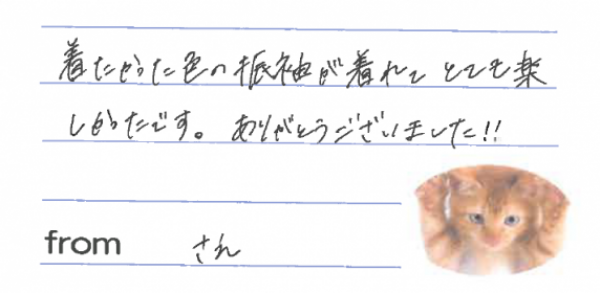 着たかった色の振袖が着れて とても楽
しかったです。 ありがとうございました!!
from さん